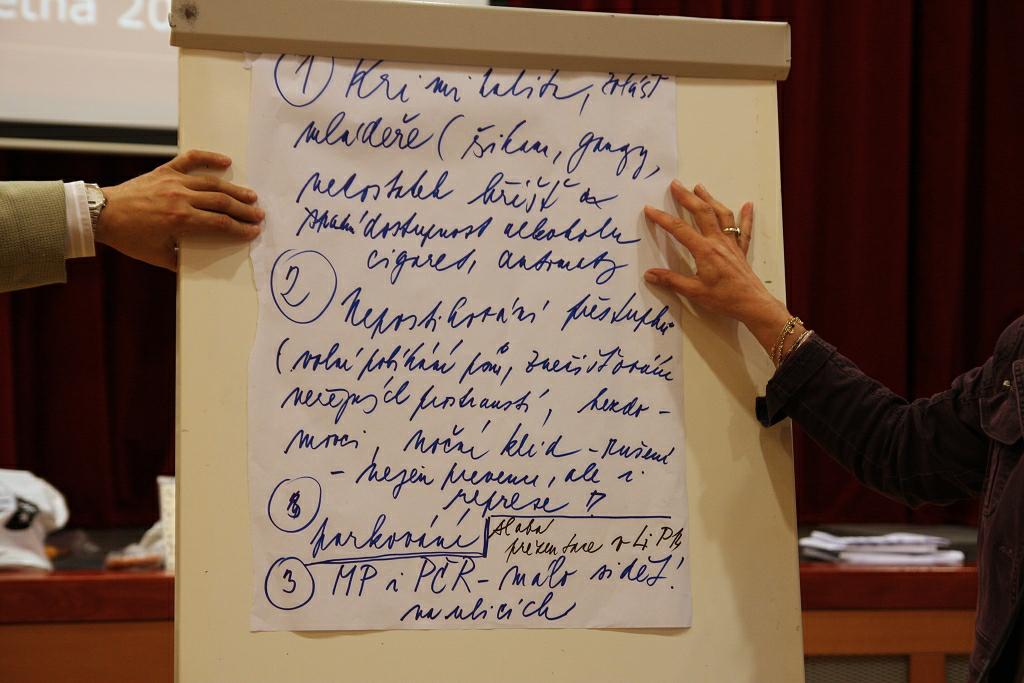 etna 20
1 Kriminalita, zvlášť
mládeže (šikana, gangy,
nedostatek hřišť a
dostupnost alkoholu
cigaret, automaty
2 Nepostihování přestupků
(volné pobíhání psů, znečišťování
veřejných prostranství, bezdo-
movci, noční klid - rušení
- nejen prevence, ale i
represe !
parkování
slabá
prezentace v Li
3 MP i PČR - málo vidět!
na ulicích